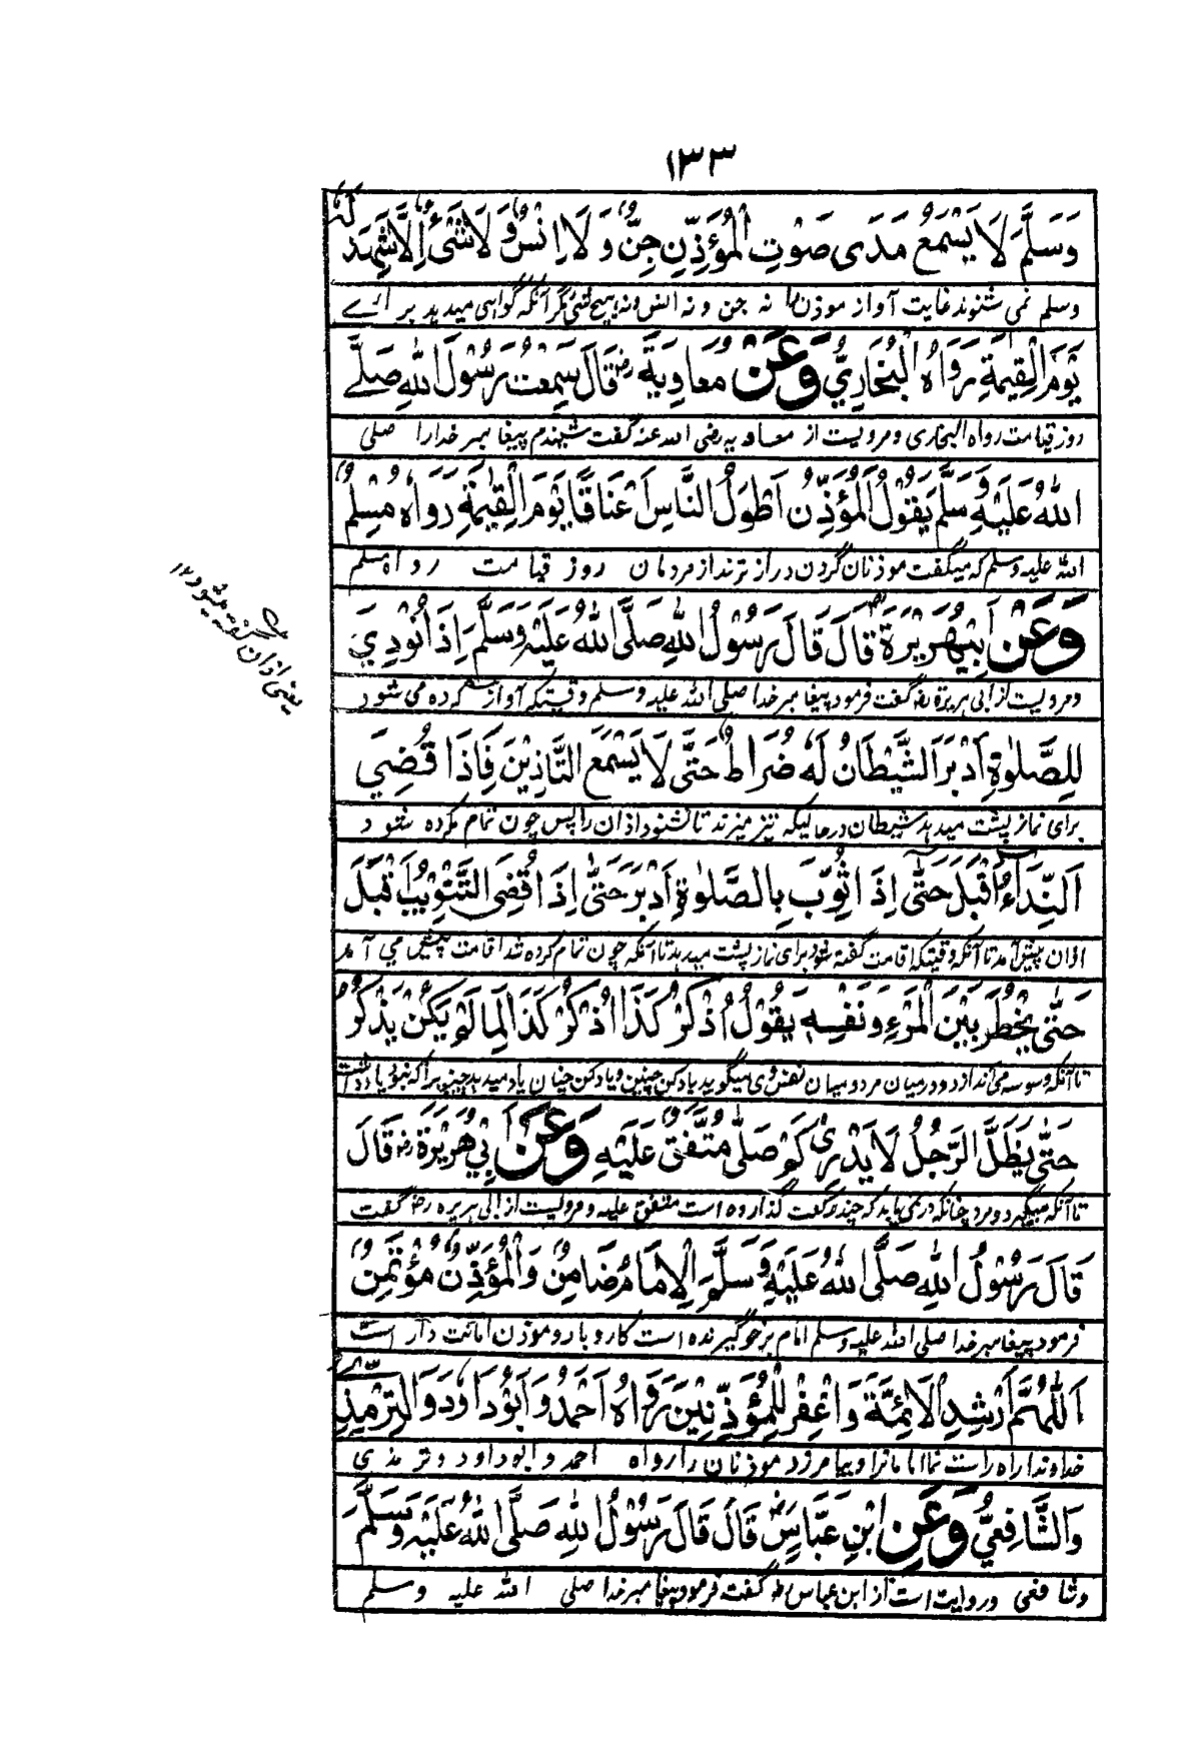 ۱۳۳
وَسَلَّمَ لَا يَسْمَعُ مَدَى صَوْتِ الْمُؤَذِّنِ جِنٌّ وَلَا اِنْسٌ وَلَا شَىْءٌ اِلَّا شَهِدَ لَهٗ
وسلم نمی شنوند غایت آواز موذن را نه جن و نه انس و نه هیچ شئی مگر آنکه گواهی میدهد برائے
يَوْمَ الْقِيٰمَةِ رَوَاهُ الْبُخَارِيُّ وَعَنْ مُعَاوِيَةَ رض قَالَ سَمِعْتُ رَسُوْلَ اللّٰهِ صَلَّے
روز قیامت رواه البخاری و مرویست از معاویه رضی الله عنه گفت شنیدم پیغامبر خدا را صلی
اللّٰهُ عَلَيْهِ وَسَلَّمَ يَقُوْلُ اَلْمُؤَذِّنُوْنَ اَطْوَلُ النَّاسِ اَعْنَاقًا يَوْمَ الْقِيٰمَةِ رَوَاهُ مُسْلِمٌ
الله علیه وسلم که میگفت موذنان گردن دراز ترند از مردمان روز قیامت رواه مسلم
وَعَنْ اَبِيْهُرَيْرَةَ رض قَالَ قَالَ رَسُوْلُ اللّٰهِ صَلَّى اللّٰهُ عَلَيْهِ وَسَلَّمَ اِذَا نُوْدِيَ
یعنی اذان گفته میشود ۱۲
و مرویست از ابی هریرة رض گفت فرمود پیغامبر خدا صلی الله علیه وسلم وقتیکه آواز کرده می شود
لِلصَّلٰوةِ اَدْبَرَ الشَّيْطَانُ لَهٗ ضُرَاطٌ حَتّٰى لَا يَسْمَعَ التَّاذِيْنَ فَاِذَا قُضِيَ
برای نماز پشت میدهد شیطان درحالیکه تیز میزند تا نشنود اذان را پس چون تمام کرده شود
اَلنِّدَاءُ اَقْبَلَ حَتّٰى اِذَا ثُوِّبَ بِالصَّلٰوةِ اَدْبَرَ حَتّٰى اِذَا قُضِىَ التَّثْوِيْبُ اَقْبَلَ
اذان پیش آمد تا آنکه وقتیکه اقامت گفته شود برای نماز پشت میدهد تا آنکه چون تمام کرده شد اقامت پیش می آمد
حَتّٰى يَخْطُرَ بَيْنَ الْمَرْءِ وَنَفْسِهٖ يَقُوْلُ اُذْكُرْ كَذَا اُذْكُرْ كَذَا لِمَا لَمْ يَكُنْ يَذْكُرُ
تا آنکه وسوسه می اندازد در میان مرد و میان نفس وی میگوید یاد کن چنین و یاد کن چنان یاد میدهد چیزیرا که نبود یاد داشت
حَتّٰى يَظَلَّ الرَّجُلُ لَا يَدْرِىْ كَمْ صَلّٰى مُتَّفَقٌ عَلَيْهِ وَعَنْ اَبِيْ هُرَيْرَةَ رض قَالَ
تا آنکه میگردد مرد چنانکه در نمی یابد که چند رکعت گذارده است متفق علیه و مرویست از ابی هریره رض گفت
قَالَ رَسُوْلُ اللّٰهِ صَلَّى اللّٰهُ عَلَيْهِ وَسَلَّمَ اَلْاِمَامُ ضَامِنٌ وَالْمُؤَذِّنُ مُؤْتَمِنٌ
فرمود پیغامبر خدا صلی الله علیه وسلم امام برخو گیرنده است کاروبار و موذن امانت دار است
اَللّٰهُمَّ اَرْشِدِ الْاَئِمَّةَ وَاغْفِرْ لِلْمُؤَذِّنِيْنَ رَوَاهُ اَحْمَدُ وَ اَبُوْدَاوٗدَ وَالتِّرْمِذِيُّ
خداوندا راه راست نما امامانرا و بیامرزد موذنان را رواه احمد و ابوداود و ترمذی
وَالشَّافِعِيُّ وَعَنِ ابْنِ عَبَّاسٍ رض قَالَ قَالَ رَسُوْلُ اللّٰهِ صَلَّى اللّٰهُ عَلَيْهِ وَسَلَّمَ
وشافعی و روایت است از ابن عباس رض گفت فرمود پیغامبر خدا صلی الله علیه وسلم